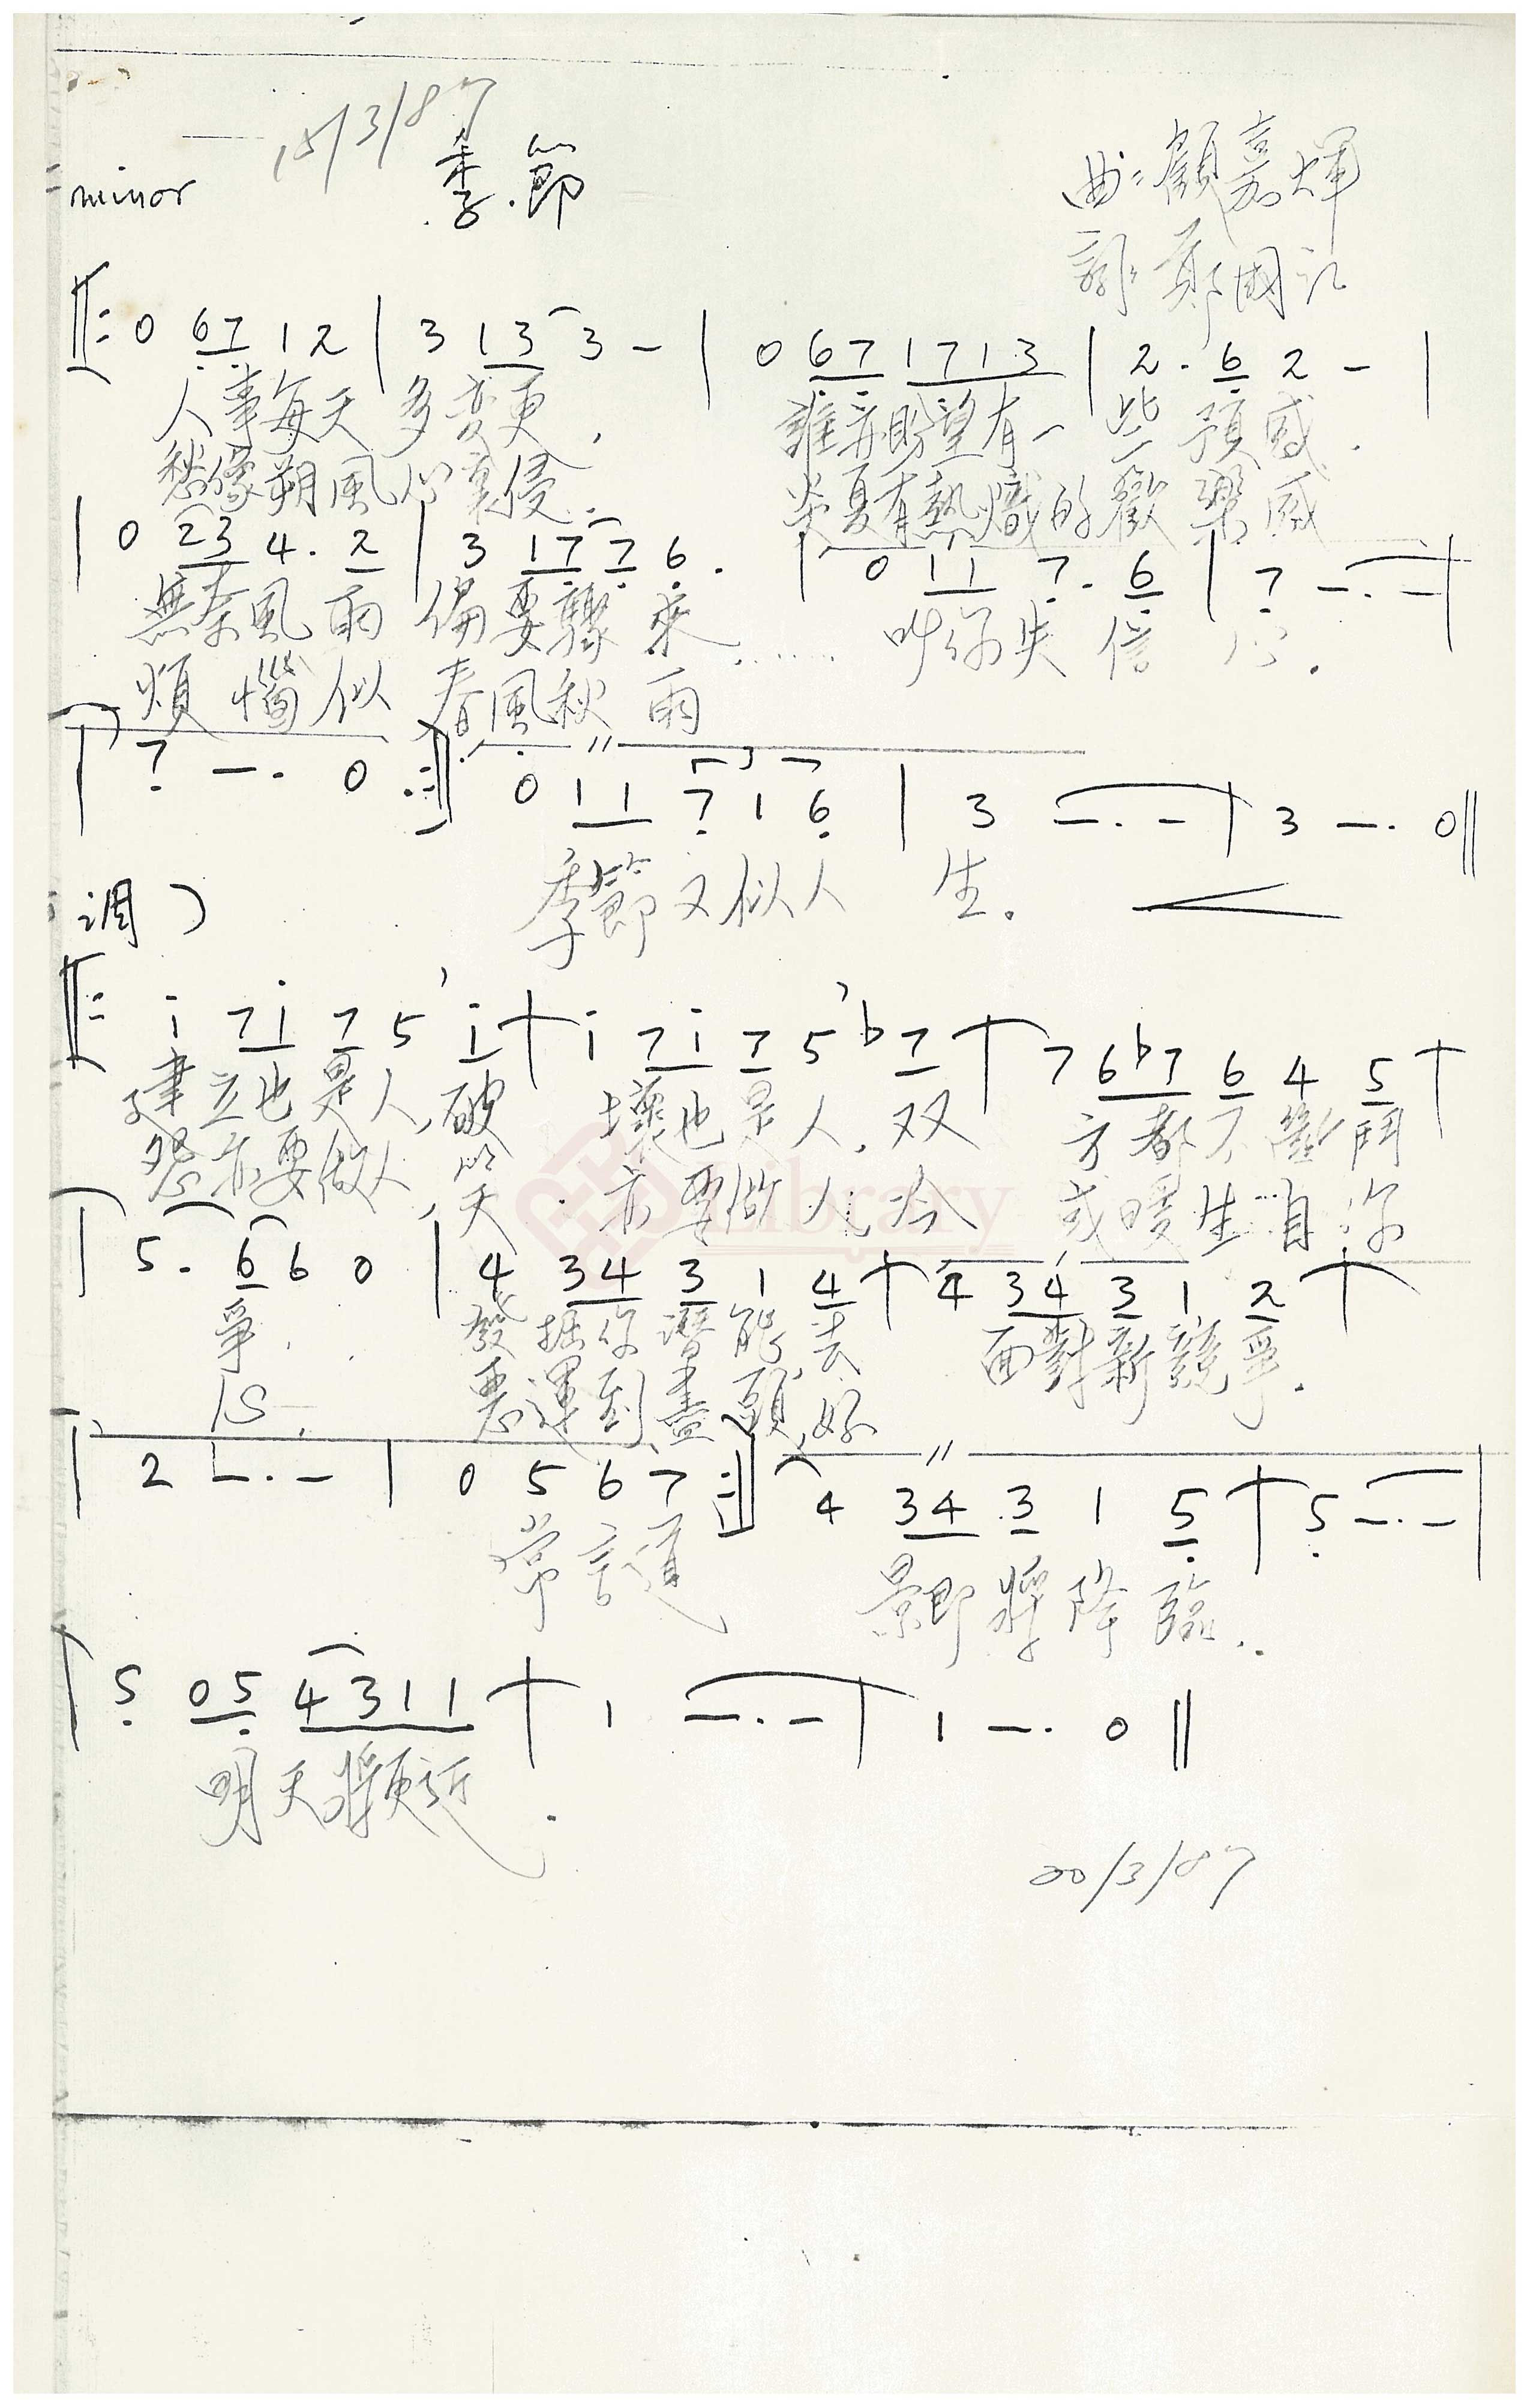 15/3/87
minor 季節
曲：顧嘉煇
詞：鄭國江
‖: 0 67 1 2 | 3 13 3 - | 0 67 1713 | 2 · 6 2 - |
人事每天多變更， 誰亦盼望有一些預感．
愁像朔風心裏侵． 炎夏有熱熾的歡樂感
| 0 23 4 · 2 | 3 17 7 6 · | 0 11 7 · 6 | 7 - · - |
無奈風雨偏要驟來…… 叫你失信心．
煩惱似春風秋雨
| 7 - · 0 :‖ 0 11 7 1 6 | 3 - · - | 3 - · 0 ‖
季節又似人生。
調）
‖: i 7i 7 5 i | i 7i 7 5 b7 | 7 6b7 6 4 5 |
建立也是人，破壞也是人，双方都不斷鬥
怨亦要做人，笑亦要做人，冷或暖生自你
| 5 · 6 6 0 | 4 34 3 1 4 | 4 34 3 1 2 |
爭． 發掘你潛能，去面對新競爭．
心． 惡運到盡頭，好
| 2 - · - | 0 5 6 7 :‖ 4 34 3 1 5 | 5 - · - |
常言道 景即將降臨．．
| 5 05 4311 | 1 - · - | 1 - · 0 ‖
明天將更近．
20/3/87
Library